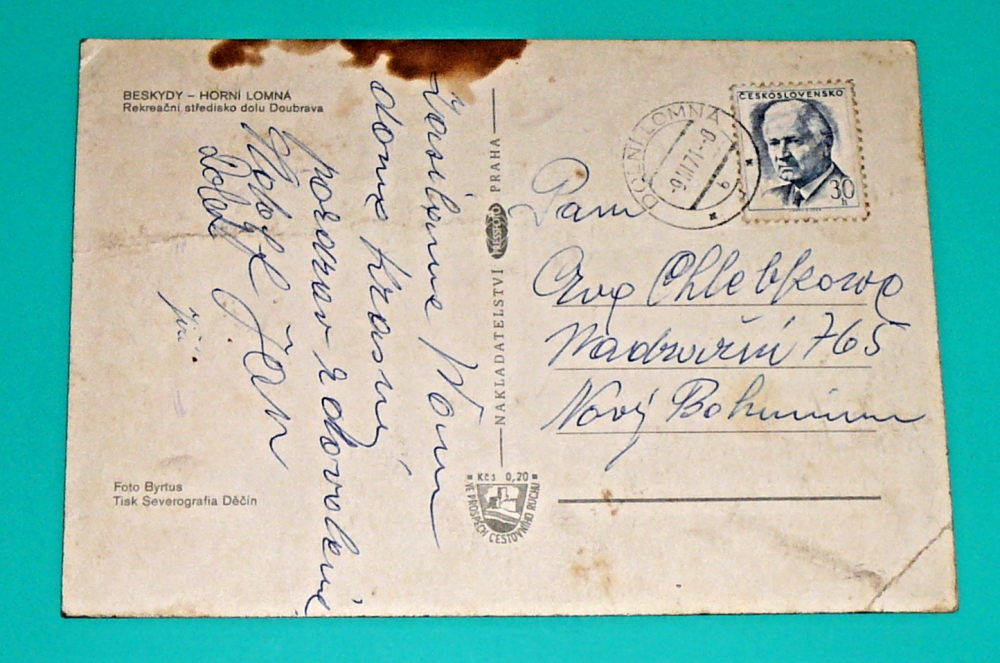 BESKYDY – HORNÍ LOMNÁ
Rekreační středisko dolu Doubrava
Vám
doma krásný
pozdrav z dovolené
Jan
Jiří.
Foto Byrtus
Tisk Severografia Děčín
NAKLADATELSTVÍ PRESSFOTO PRAHA
Kčs 0,20
VE PROSPĚCH CESTOVNÍHO RUCHU
DOLNÍ LOMNÁ
ČESKOSLOVENSKO
30 h
Paní
Chlebkova
Nádražní 765
Nový Bohumín